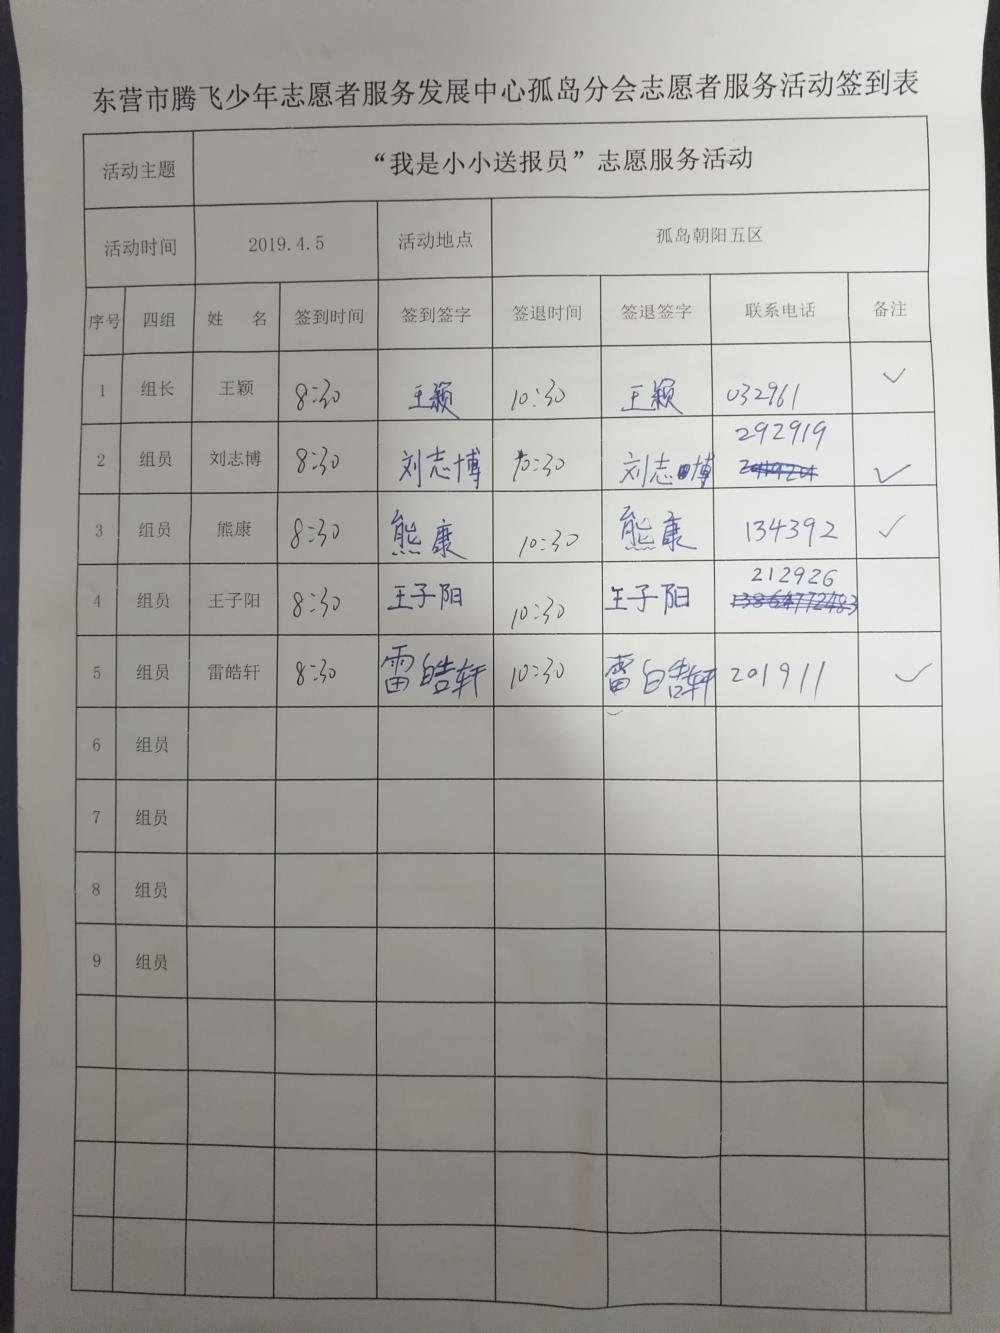 东营市腾飞少年志愿者服务发展中心孤岛分会志愿者服务活动签到表
活动主题 “我是小小送报员”志愿服务活动
活动时间 2019.4.5 活动地点 孤岛朝阳五区
序号 四组 姓 名 签到时间 签到签字 签退时间 签退签字 联系电话 备注
1 组长 王颖 8:30 王颖 10:30 王颖 032961 ✓
292919
2 组员 刘志博 8:30 刘志博 10:30 刘志博 ✓
3 组员 熊康 8:30 熊康 10:30 熊康 134392 ✓
212926
4 组员 王子阳 8:30 王子阳 10:30 王子阳 13864772483
5 组员 雷皓轩 8:30 雷皓轩 10:30 雷皓轩 201911 ✓
6 组员
7 组员
8 组员
9 组员